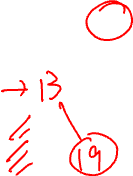 → 13
19